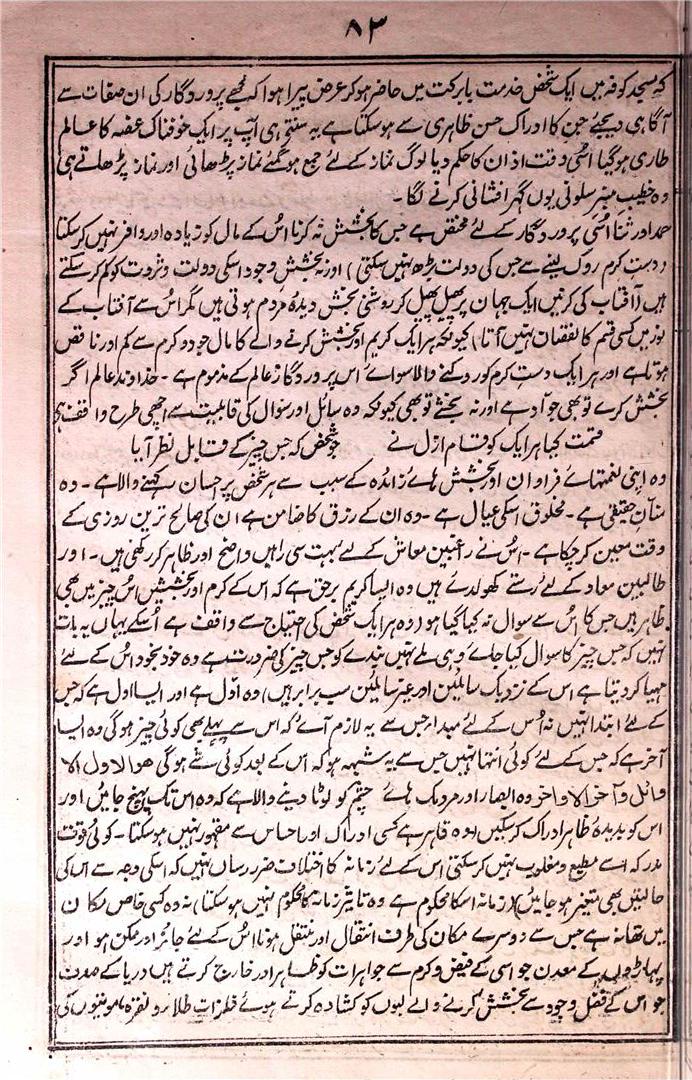 ۸۳
کہ مسجد کوفہ میں ایک شخص خدمت بابرکت میں حاضر ہوکر عرض پیرا ہوا کہ مجھے پروردگار کی ان صفات سے
آگاہی دیجئے جن کا ادراک حسن ظاہری سے ہوسکتا ہے یہ سنتے ہی آپ پر ایک خوفناک غصہ کا عالم
طاری ہوگیا اسی وقت اذان کا حکم دیا لوگ نماز کے لئے جمع ہوگئے نماز پڑھائی اور نماز پڑھتے ہی
وہ خطیب منبر سلونی یوں گہر افشانی کرنے لگا۔
حمد اور ثنا اسی پروردگار کے لئے مختص ہے جس کا بخشش نہ کرنا اس کے مال کو زیادہ اور وافر نہیں کرسکتا
(دست کرم روک لینے سے جس کی دولت بڑھ نہیں سکتی) اور نہ بخشش وجود اسکی دولت وثروت کو کم کرسکتے
ہیں (آفتاب کی کرنیں ایک جہان پر پھیل پھیل کر روشنی بخش دیدۂ مردم ہوتی ہیں مگر اس سے آفتاب کے
نور میں کسی قسم کا نقصان نہیں آتا) کیونکہ ہر ایک کریم اور بخشش کرنے والے کا مال جود وکرم سے کم اور ناقص
ہوتا ہے اور ہر ایک دست کرم کو روکنے والا سوائے اس پروردگار عالم کے مذموم ہے۔ خداوند عالم اگر
بخشش کرے تو بھی جوّاد ہے اور نہ بخشے تو بھی کیونکہ وہ سائل اور سوال کی قابلیت سے اچھی طرح واقف ہے
قسمت کیا ہر ایک کو قسام ازل نے جو شخص کہ جس چیز کے قابل نظر آیا
وہ اپنی نعمتہائے فراوان اور بخشش ہائے زائدہ کے سبب سے ہر شخص پر احسان رکھنے والا ہے۔ وہ
منان حقیقی ہے۔ مخلوق اسکی عیال ہے۔ وہ ان کے رزق کا ضامن ہے ان کی صالح ترین روزی کے
وقت معین کرچکا ہے۔ اس نے راغبین معاش کے لئے بہت سی راہیں واضح اور ظاہر کر رکھی ہیں۔ اور
طالبین معاد کے لئے رستے کھولدئے ہیں وہ ایسا کریم برحق ہے کہ اس کے کرم اور بخشش اس چیز میں بھی
ظاہر ہیں جس کا اس سے سوال نہ کیا گیا ہو (وہ ہر ایک شخص کی احتیاج سے واقف ہے اسکے یہاں یہ بات
نہیں کہ جس چیز کا سوال کیا جائے وہی ملے نہیں بندے کو جس چیز کی ضرورت ہے وہ خود بخود اس کے لئے
مہیا کردیتا ہے اس کے نزدیک سائلین اور غیر سائلین سب برابر ہیں) وہ اوّل ہے اور ایسا اول ہے کہ جس
کے لئے ابتدا نہیں نہ اس کے لئے مبداء جس سے یہ لازم آئے کہ اس سے پہلے بھی کوئی چیز ہوگی وہ ایسا
آخر ہے کہ جس کے لئے کوئی انتہا نہیں جس سے یہ شبہہ ہو کہ اس کے بعد کوئی شے ہوگی ھوالاول الا
وائل وآخر الاواخر وہ ابصار اور مردمک ہائے چشم کو لوٹا دینے والا ہے کہ وہ اس تک پہنچ جائیں اور
اس کو بدیدۂ ظاہر ادراک کرسکیں (وہ قاہر ہے کسی ادراک اور احساس سے مقہور نہیں ہوسکتا۔ کوئی قوت
مدرکہ اسے مطیع ومغلوب نہیں کرسکتی اس کے لئے زمانہ کا اختلاف ضرر رساں نہیں کہ اسکی وجہ سے اس کی
حالتیں بھی متغیر ہوجائیں (زمانہ اسکا محکوم ہے وہ تاثیر زمانہ کا محکوم نہیں ہوسکتا) نہ وہ کسی خاص مکان
میں تھا نہ ہے جس سے دوسرے مکان کی طرف انتقال اور منتقل ہونا اس کے لئے جائز اور ممکن ہو اور
پہاڑوں کے معدن جو اسی کے فیض وکرم سے جواہرات کو ظاہر اور خارج کرتے ہیں دریا کے صدف
جو اس کے فضل وجود سے بخشش کرنے والے لبوں کو کشادہ کرتے ہوئے فلزات طلا و نقرہ، موتیوں کی